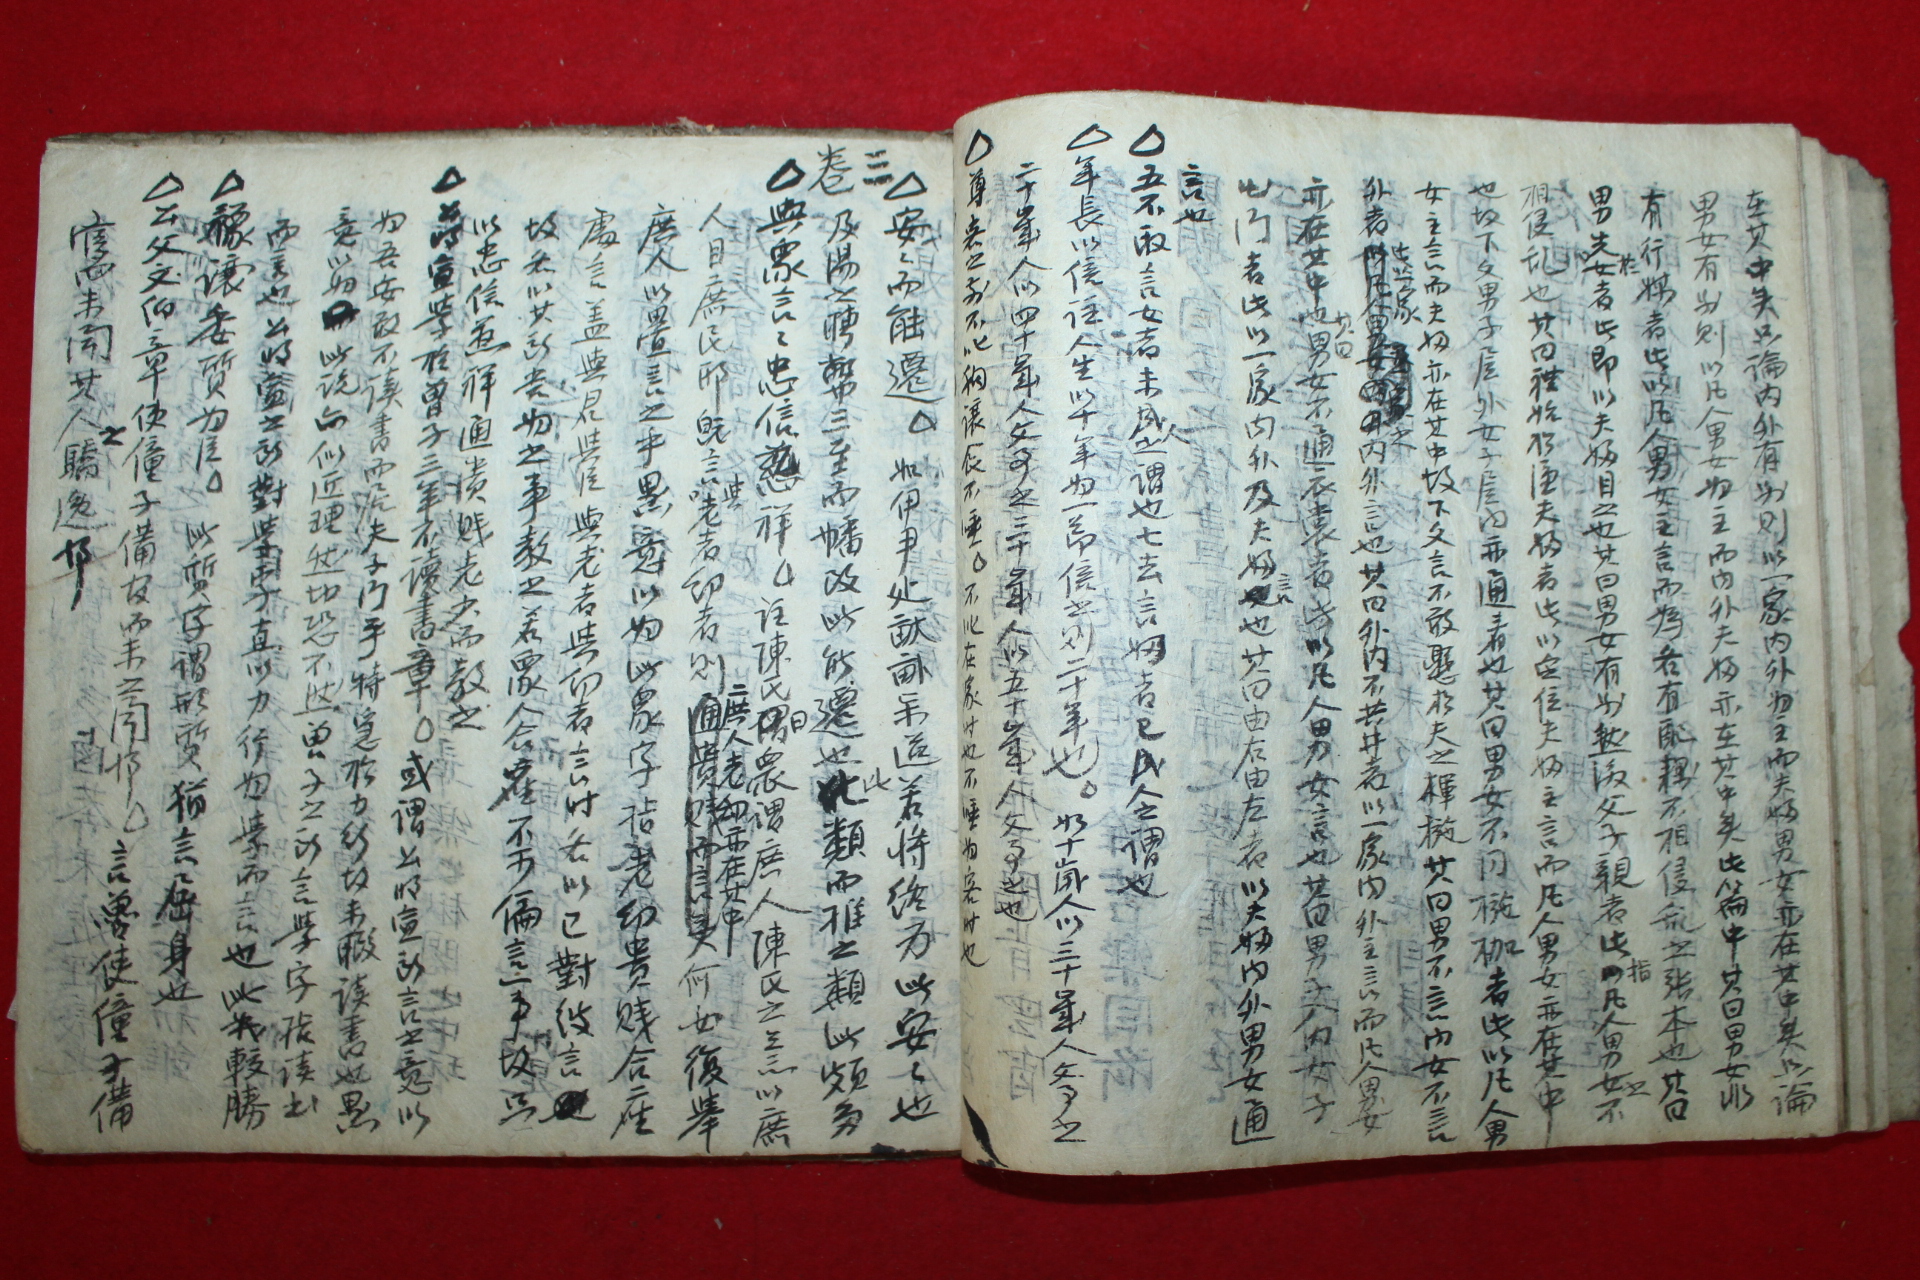 在其中矣只論內外有別則以一家內外爲主而夫婦男女亦在其中矣只論
男女有別則以凡人男女爲主而內外夫婦亦在其中矣此篇中其曰男女非
有行媒者此以凡人男女主言而爲各有配耦不相侵亂之張本也其曰
男先於女者此即以夫婦目之也其曰男女有別然後父子親者此指凡人男女之不
相侵亂也其曰禮始於謹夫婦者此以定位夫婦主言而凡人男女亦在其中
也故下文男子居外女子居內亦通看也其曰男女不同椸枷者此以凡人男
女主言而夫婦亦在其中故下文言不敢懸於夫之楎椸其曰男不言內女不言
外者內外言也其曰外內不共井者以一家內外主言而凡人男女
亦在其中也其曰男女不通衣裳者此以凡人男女言也其曰男子入內女子
出門者此以一家內外及夫婦言也其曰由右由左者以夫婦內外男女通
言也
△五不取言女者未成人之謂也七去言婦者已成人之謂也
△年長以倍註人生以十年爲一節倍之則二十年也○如十歲人以三十歲人父事之
二十歲人以四十歲人父事之三十歲人以五十歲人父事之也
△尊客之前不叱狗讓食不唾○不叱在家時也不唾爲客時也
卷三
△安安而能遷○如伊尹處畎畝樂道若將終身此安安也
及湯之聘幣三至而幡改此能遷也此類而推之類此頗多
△與衆言言忠信慈祥○註陳氏曰衆謂庶人陳氏之言以庶
人目庶民耶旣言與老者幼者則庶人老幼亦在其中矣何必復擧
庶人以疊言之乎愚意以爲此衆字指老幼貴賤合座
處言盖與君與居與老者與幼者言時各以己對彼言
故各以其所貴爲之事敎之若衆人合座不可偏言一事故只
以忠信慈祥通貴賤老少而敎之
△公明宣學於曾子三年不讀書章○或謂公明宣所言之意以
爲吾安敢不讀書而居夫子門乎特急於力行故未暇讀書也愚
意以爲此說亦似近理然切恐不然曾子之所言學字指讀書
而言也公明宣之所對學字直以力行爲學而言也此我較勝
△禄讓委質爲臣○此質字謂形質猶言屈身也
△公父文伯之章使僮子備官而未之聞耶○言魯使僮子備
官而未聞其人之驕逸耶